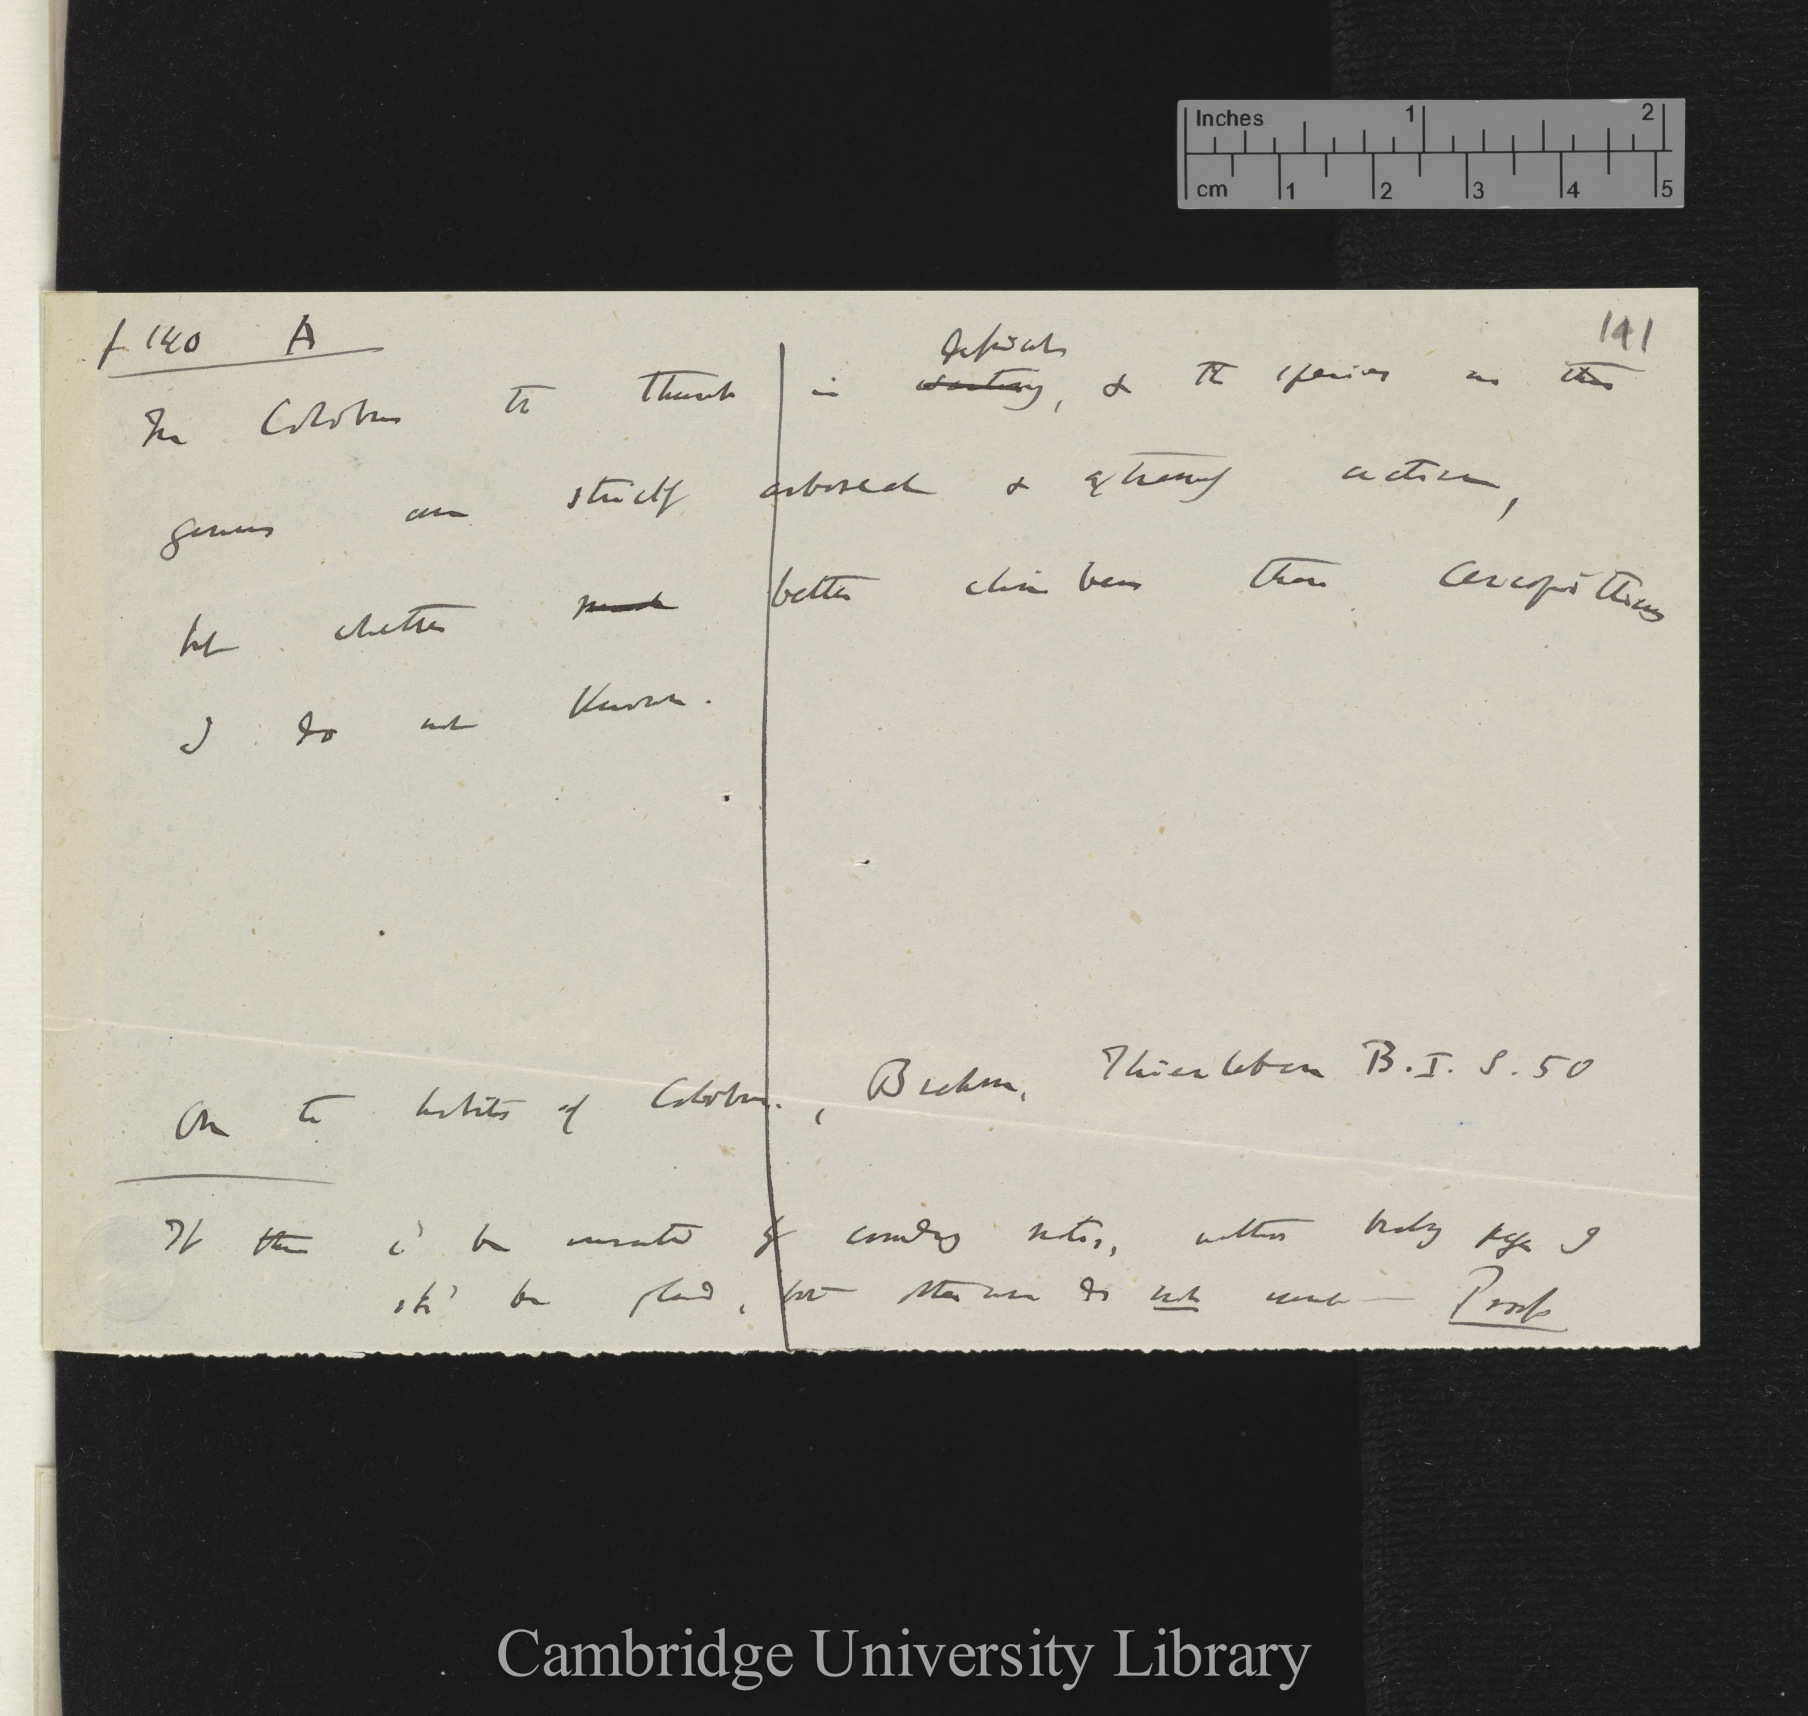 Inches 1 2
cm 1 2 3 4 5
141
p 140 A
deficient
In Colobus the thumb is wanting, & the species in this
genus are strictly arboreal & extremely active,
but whether much better climbers than Cercopithecus
I do not know.
On the habits of Colobus, Brehm, Thierleben B. I. S. 50
If this cd be inserted by crowding notes, without breaking page I
shd be glad, but otherwise do not insert — Proof
Cambridge University Library